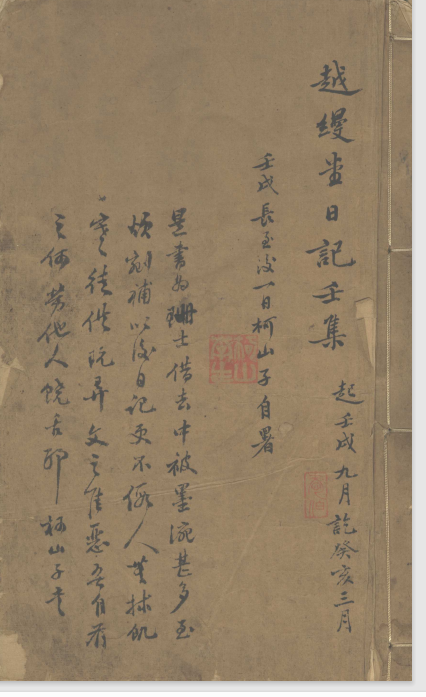 越縵堂日記壬集
起壬戌九月訖癸亥三月
壬戌長至後一日柯山子自署
是書為珊士借去中被墨涴甚多至
煩割補以後日記更不假人其林飢
寒徒供玩弄文之佳惡吾自知
之何勞他人饒舌耶柯山子言